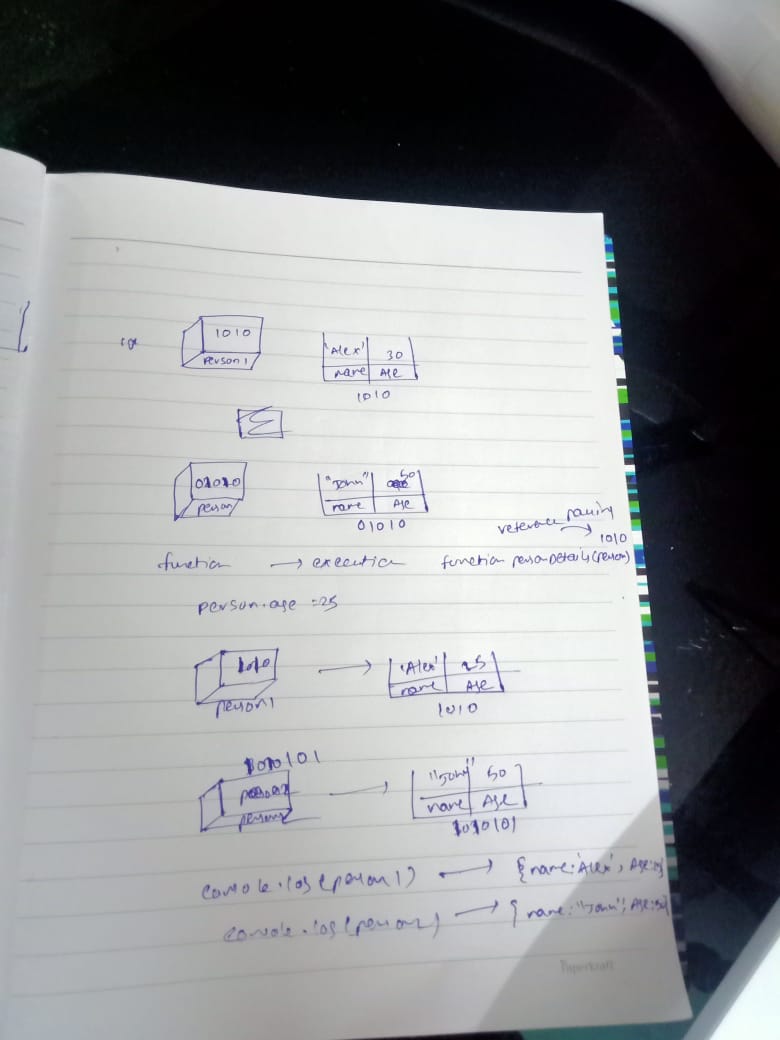 1010
Person1
'Alex' 30
name Age
1010
01010
person
"John" 50
name Age
01010
reference
1010
function → execution function personDetails(person)
person.age = 25
1010
person1
'Alex' 25
name Age
1010
1010101
person2
"John" 50
name Age
1010101
console.log(person1) → {name:'Alex', Age:25
console.log(person2) → { name:"John", Age:50
Paperkraft